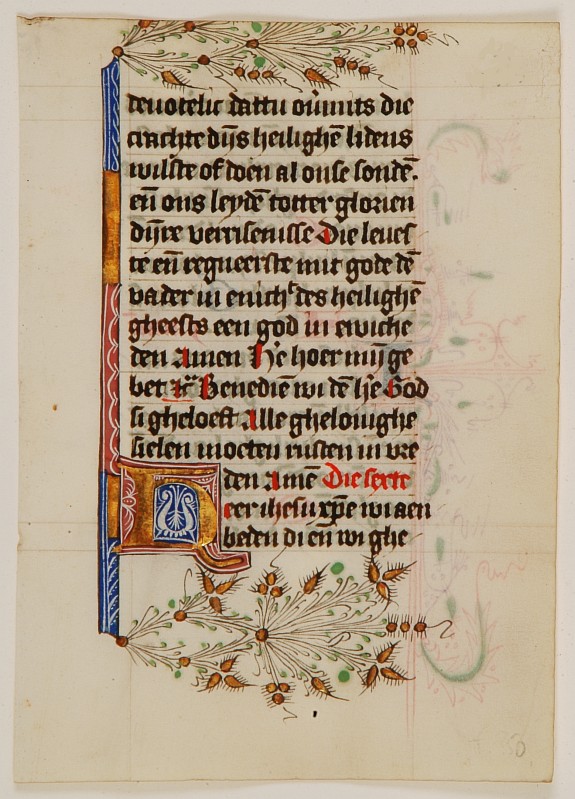 devotelic dattu ou̅mits die
crachte dijns heilighe̅ lidens
wilste of doen al onse sonde̅.
en̅ ons leyde̅ totter glorien
dijnre verrisenisse Die leues
te en̅ regneerste mit gode de̅
vader in enich᷑ des heilighe̅
gheests een god in ewiche
den Amen He̅ hoer mijn ge
bet Benedie̅ wi de̅ he̅ God
si gheloeft Alle ghelouighe
sielen moeten rusten in vre
den Ame̅ Die sexte
eer ihesu xp̅e wi aen
beden di en̅ wi ghe